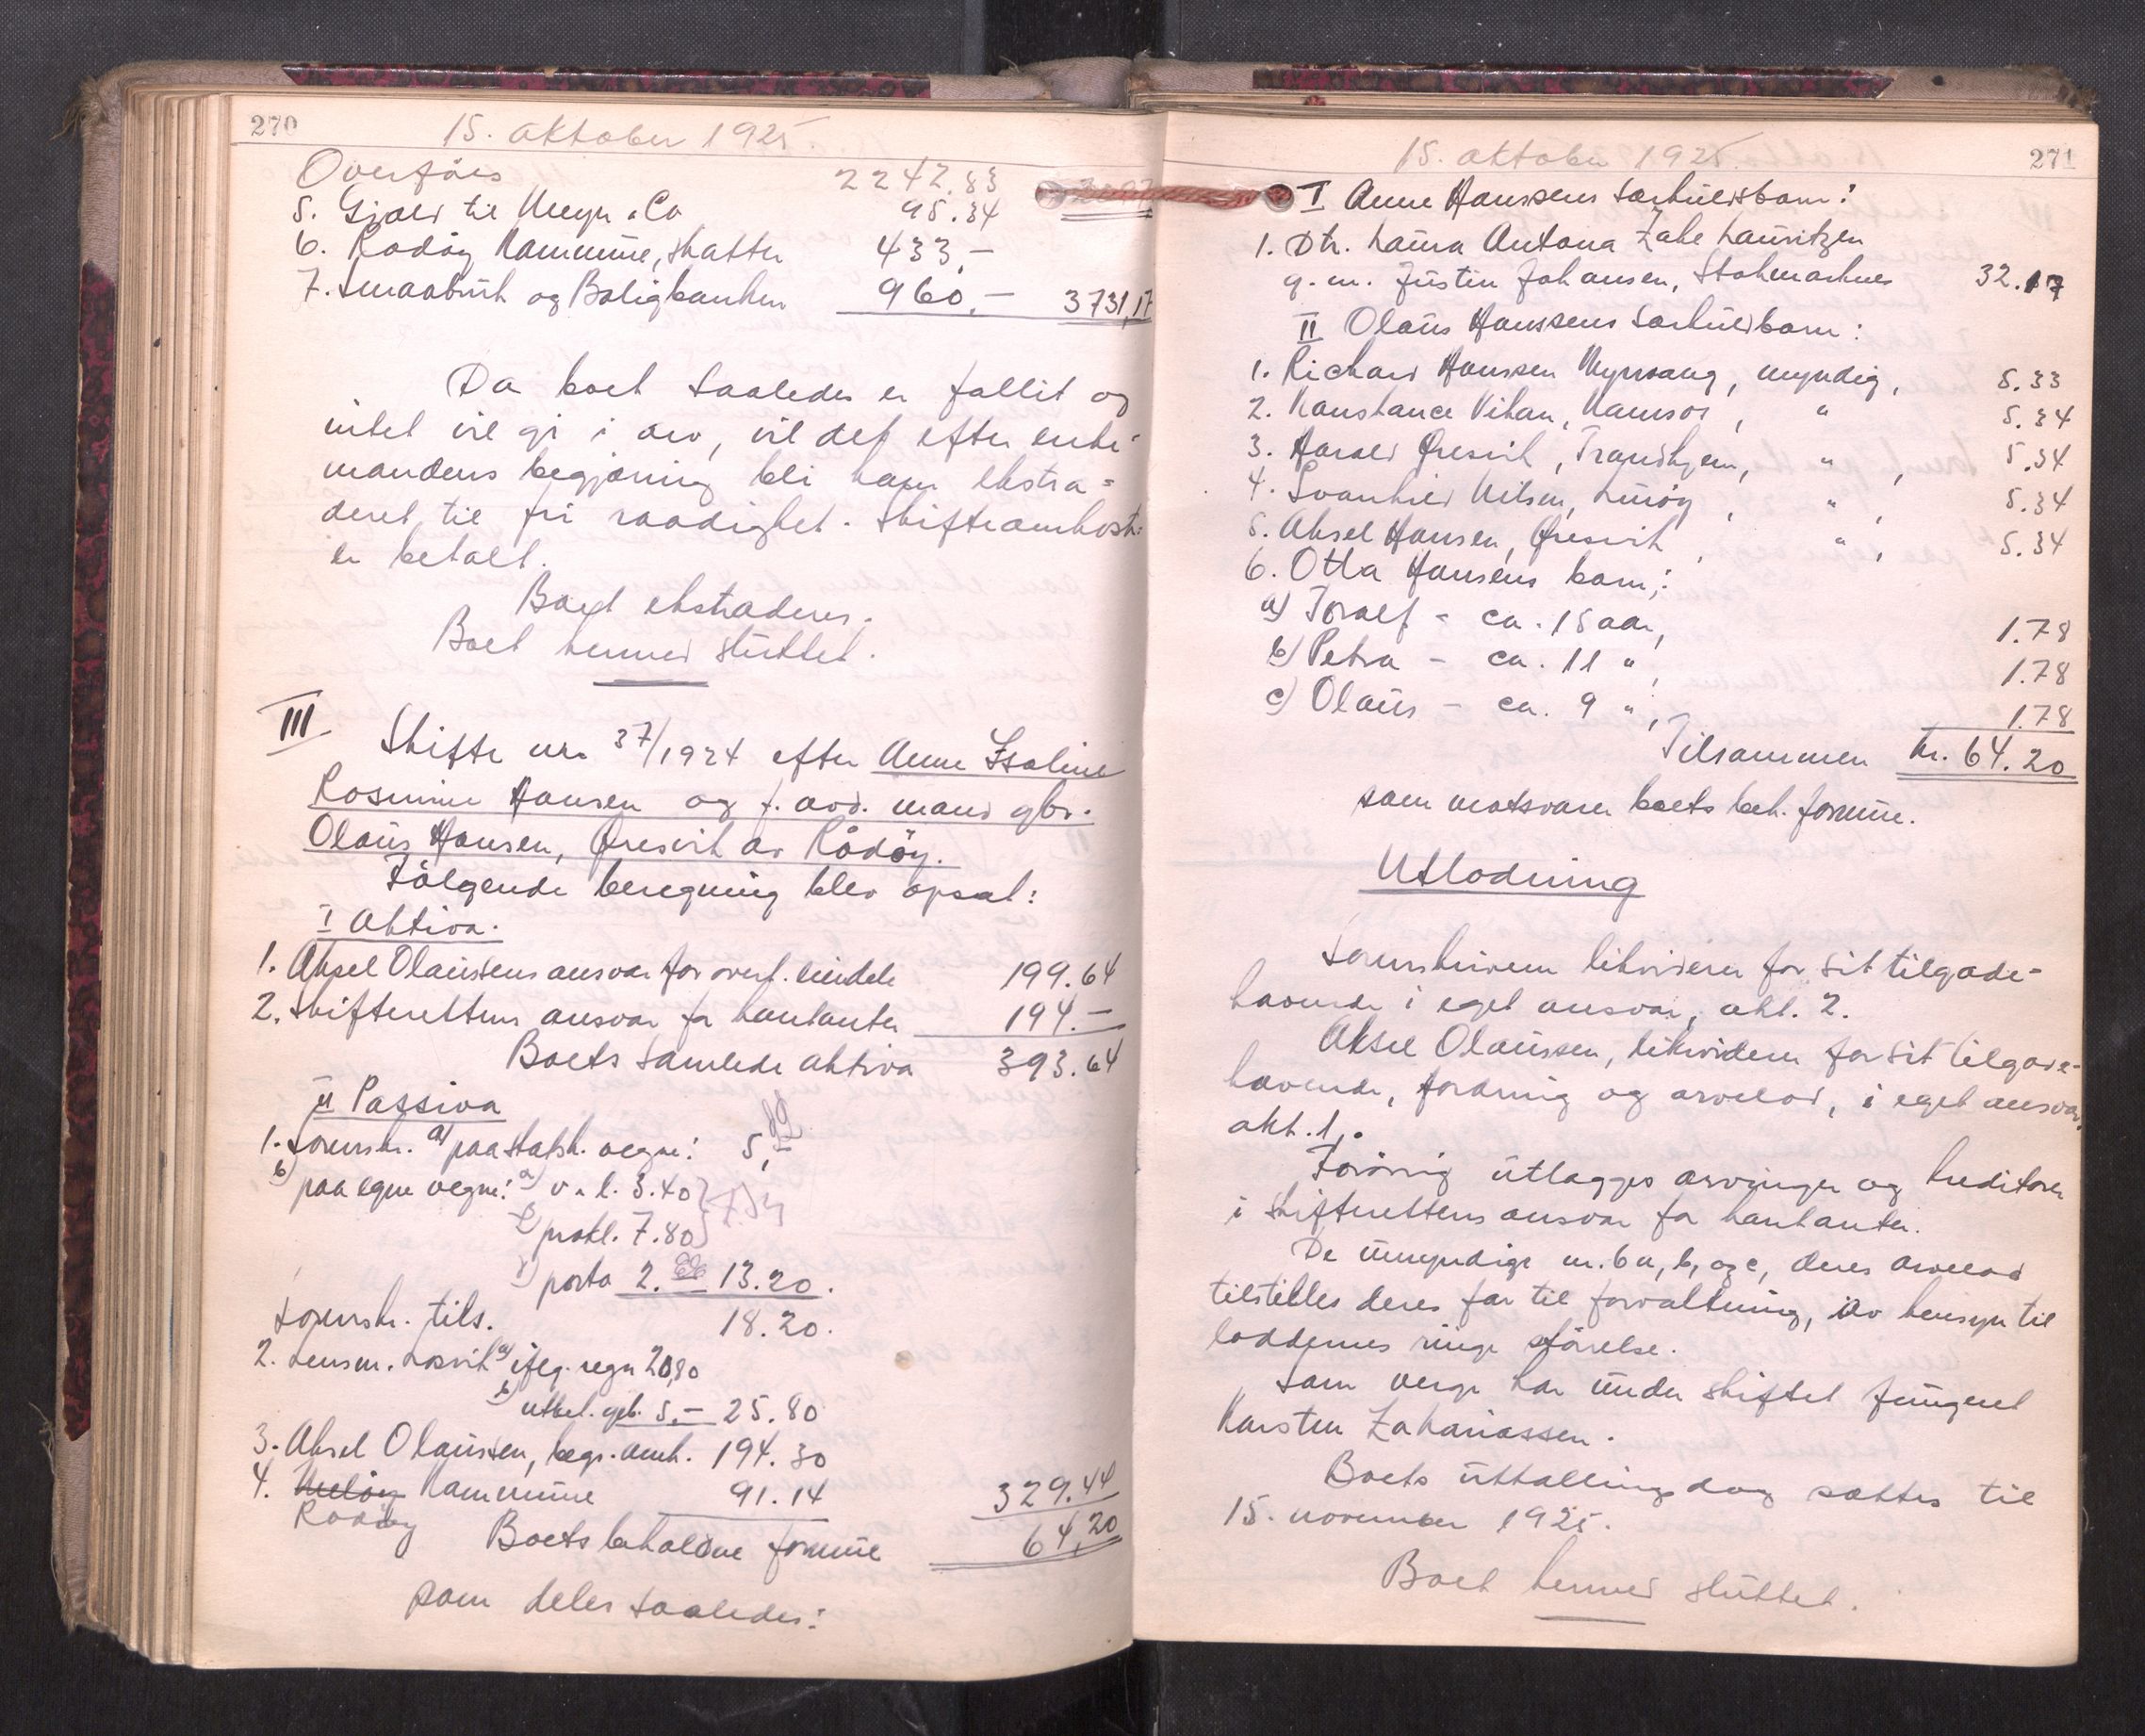 270
15. oktober 1925.
Overföres 2242.83
5. Gjæld til Meyer & Co 95.34
6. Rödöy kommune, skatter 433.-
7. Smaabruk og Boligbanken 960.- 3731,17
Da boet saaledes er fallit og
intet vil gi i arv, vil det efter enke-
mandens begjæring bli ham ekstra-
deret til fri raadighet. Skifteomkost.
er betalt.
Boet ekstraderes.
Boet hermed sluttet.
III Skifte nr. 37/1924 efter Anne Isaline
Rosmine Hansen og f. avd. mand gbr.
Olaus Hansen, Öresvik av Rådöy.
Fölgende beregning blev opsat:
I Aktiva.
1. Aksel Olaussens ansvar for overt. eiendele 199.64
2. Skifterettens ansvar for kontanter 194.-
Boets samlede aktiva 393.64
II Passiva
1. Sorenskr. a) paa statsk. vegne: 5,-
b) paa egne vegne: a) v. l. 3.40
b) prokl. 7.80
c) porto 2.- 13.20.
Sorenskr. tils. 18.20.
2. Lensm. Losvik a) ifög. regn 20,80
b) utbet. geb. 5.- 25.80
3. Aksel Olaussen, begr. omk. 194.30
4. Melöy kommune 91.14 329.44
Rödöy
Boets beholdne formue 64,20
som deles saaledes:
271
15. oktober 1925.
I Anne Hanssens særkuldsbarn:
1. Dtr. Laura Antona Zake Lauritzen
g. m. Justin Johansen, Stokmarknes 32.17
II Olaus Hanssens særkuldbarn:
1. Richard Hanssen Myrvang, myndig, 5.33
2. Konstance Vikan, Namsos, " 5.34
3. Harald Öresvik, Trondhjem, " , 5.34
4. Svanhild Nilsen, Luröy, " , 5.34
5. Aksel Hansen, Öresvik, " , 5.34
6. Otta Hansens barn:
a) Toralf - ca. 15 aar, 1.78
b) Petra - ca. 11 " , 1.78
c) Olaus - ca. 9 " , 1.78
Tilsammen kr. 64.20
som motsvarer boets beh. formue.
Utlodning
Sorenskriveren likviderer for sit tilgode-
havende i eget ansvar, akt. 2.
Aksel Olaussen, likviderer for sit tilgode-
havende, fordring og arvelod, i eget ansvar
akt. 1.
Forövrig utlægges arvinger og kreditorer
i skifterettens ansvar for kontanter.
De umyndige nr. 6 a, b, og c, deres arvelod
tilstilles deres far til forvaltning, av hensyn til
loddernes ringe störrelse.
Som verge har under skiftet fungeret
Karsten Zakariassen.
Boets uttællingsdag sættes til
15. november 1925.
Boet hermed sluttet.